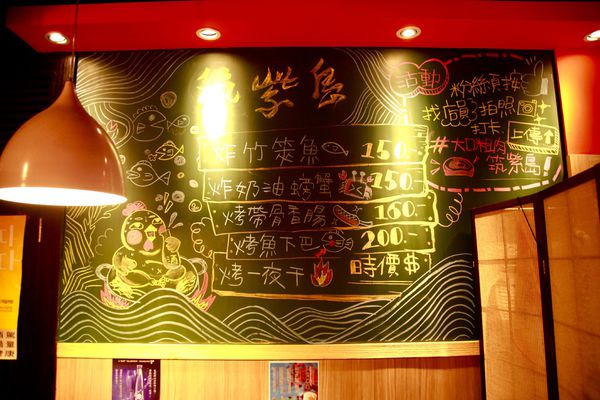 筑紫島
炸竹筴魚 150.-
炸奶油螃蟹 150.-
烤帶骨香腸 160.-
烤魚下巴 200.-
烤一夜干 時價$
活動
粉絲頁按
找店員 拍照
打卡
上傳
#大口粗肉
筑紫島!